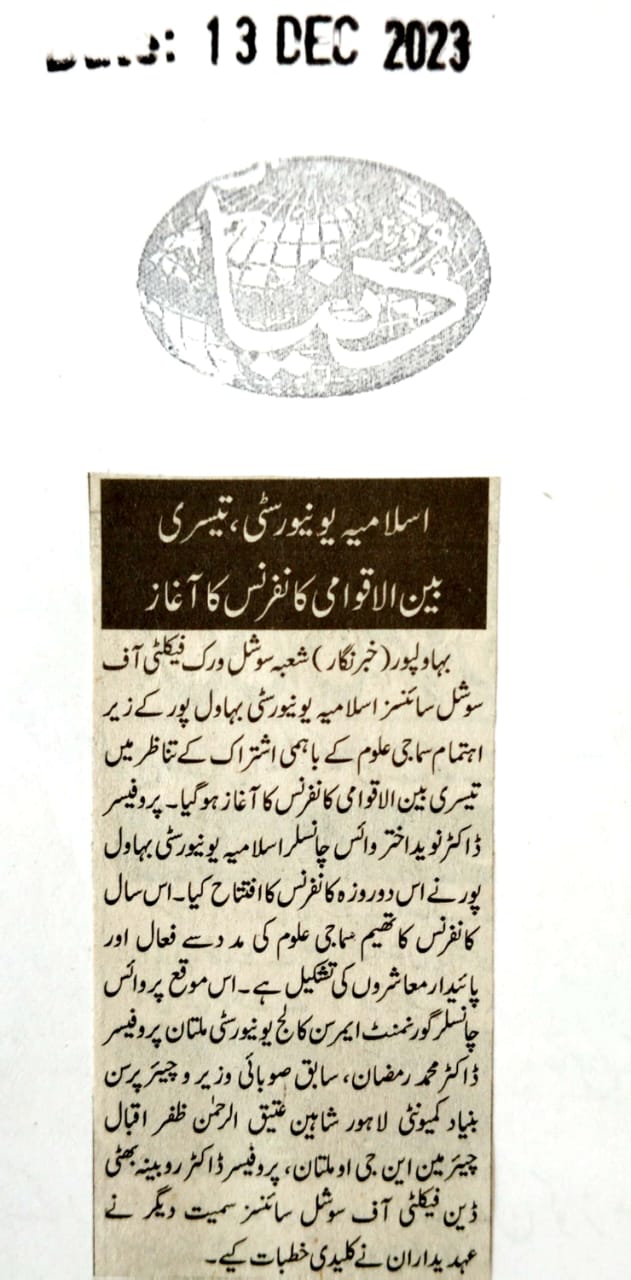 Date: 13 DEC 2023
روزنامہ
دنیا
اسلامیہ یونیورسٹی، تیسری
بین الاقوامی کانفرنس کا آغاز
بہاولپور (خبرنگار) شعبہ سوشل ورک فیکلٹی آف
سوشل سائنسز اسلامیہ یونیورسٹی بہاول پور کے زیر
اہتمام سماجی علوم کے باہمی اشتراک کے تناظر میں
تیسری بین الاقوامی کانفرنس کا آغاز ہو گیا۔ پروفیسر
ڈاکٹر نوید اختر وائس چانسلر اسلامیہ یونیورسٹی بہاول
پور نے اس دو روزہ کانفرنس کا افتتاح کیا۔ اس سال
کانفرنس کا تھیم سماجی علوم کی مدد سے فعال اور
پائیدار معاشروں کی تشکیل ہے۔ اس موقع پر وائس
چانسلر گورنمنٹ ایمرسن کالج یونیورسٹی ملتان پروفیسر
ڈاکٹر محمد رمضان، سابق صوبائی وزیر و چیئرپرسن
بنیاد کمیونٹی لاہور شاہین عتیق الرحمٰن ظفر اقبال
چیئرمین این جی او ملتان، پروفیسر ڈاکٹر روبینہ بھٹی
ڈین فیکلٹی آف سوشل سائنسز سمیت دیگر نے
عہدیداران نے کلیدی خطبات کیے۔